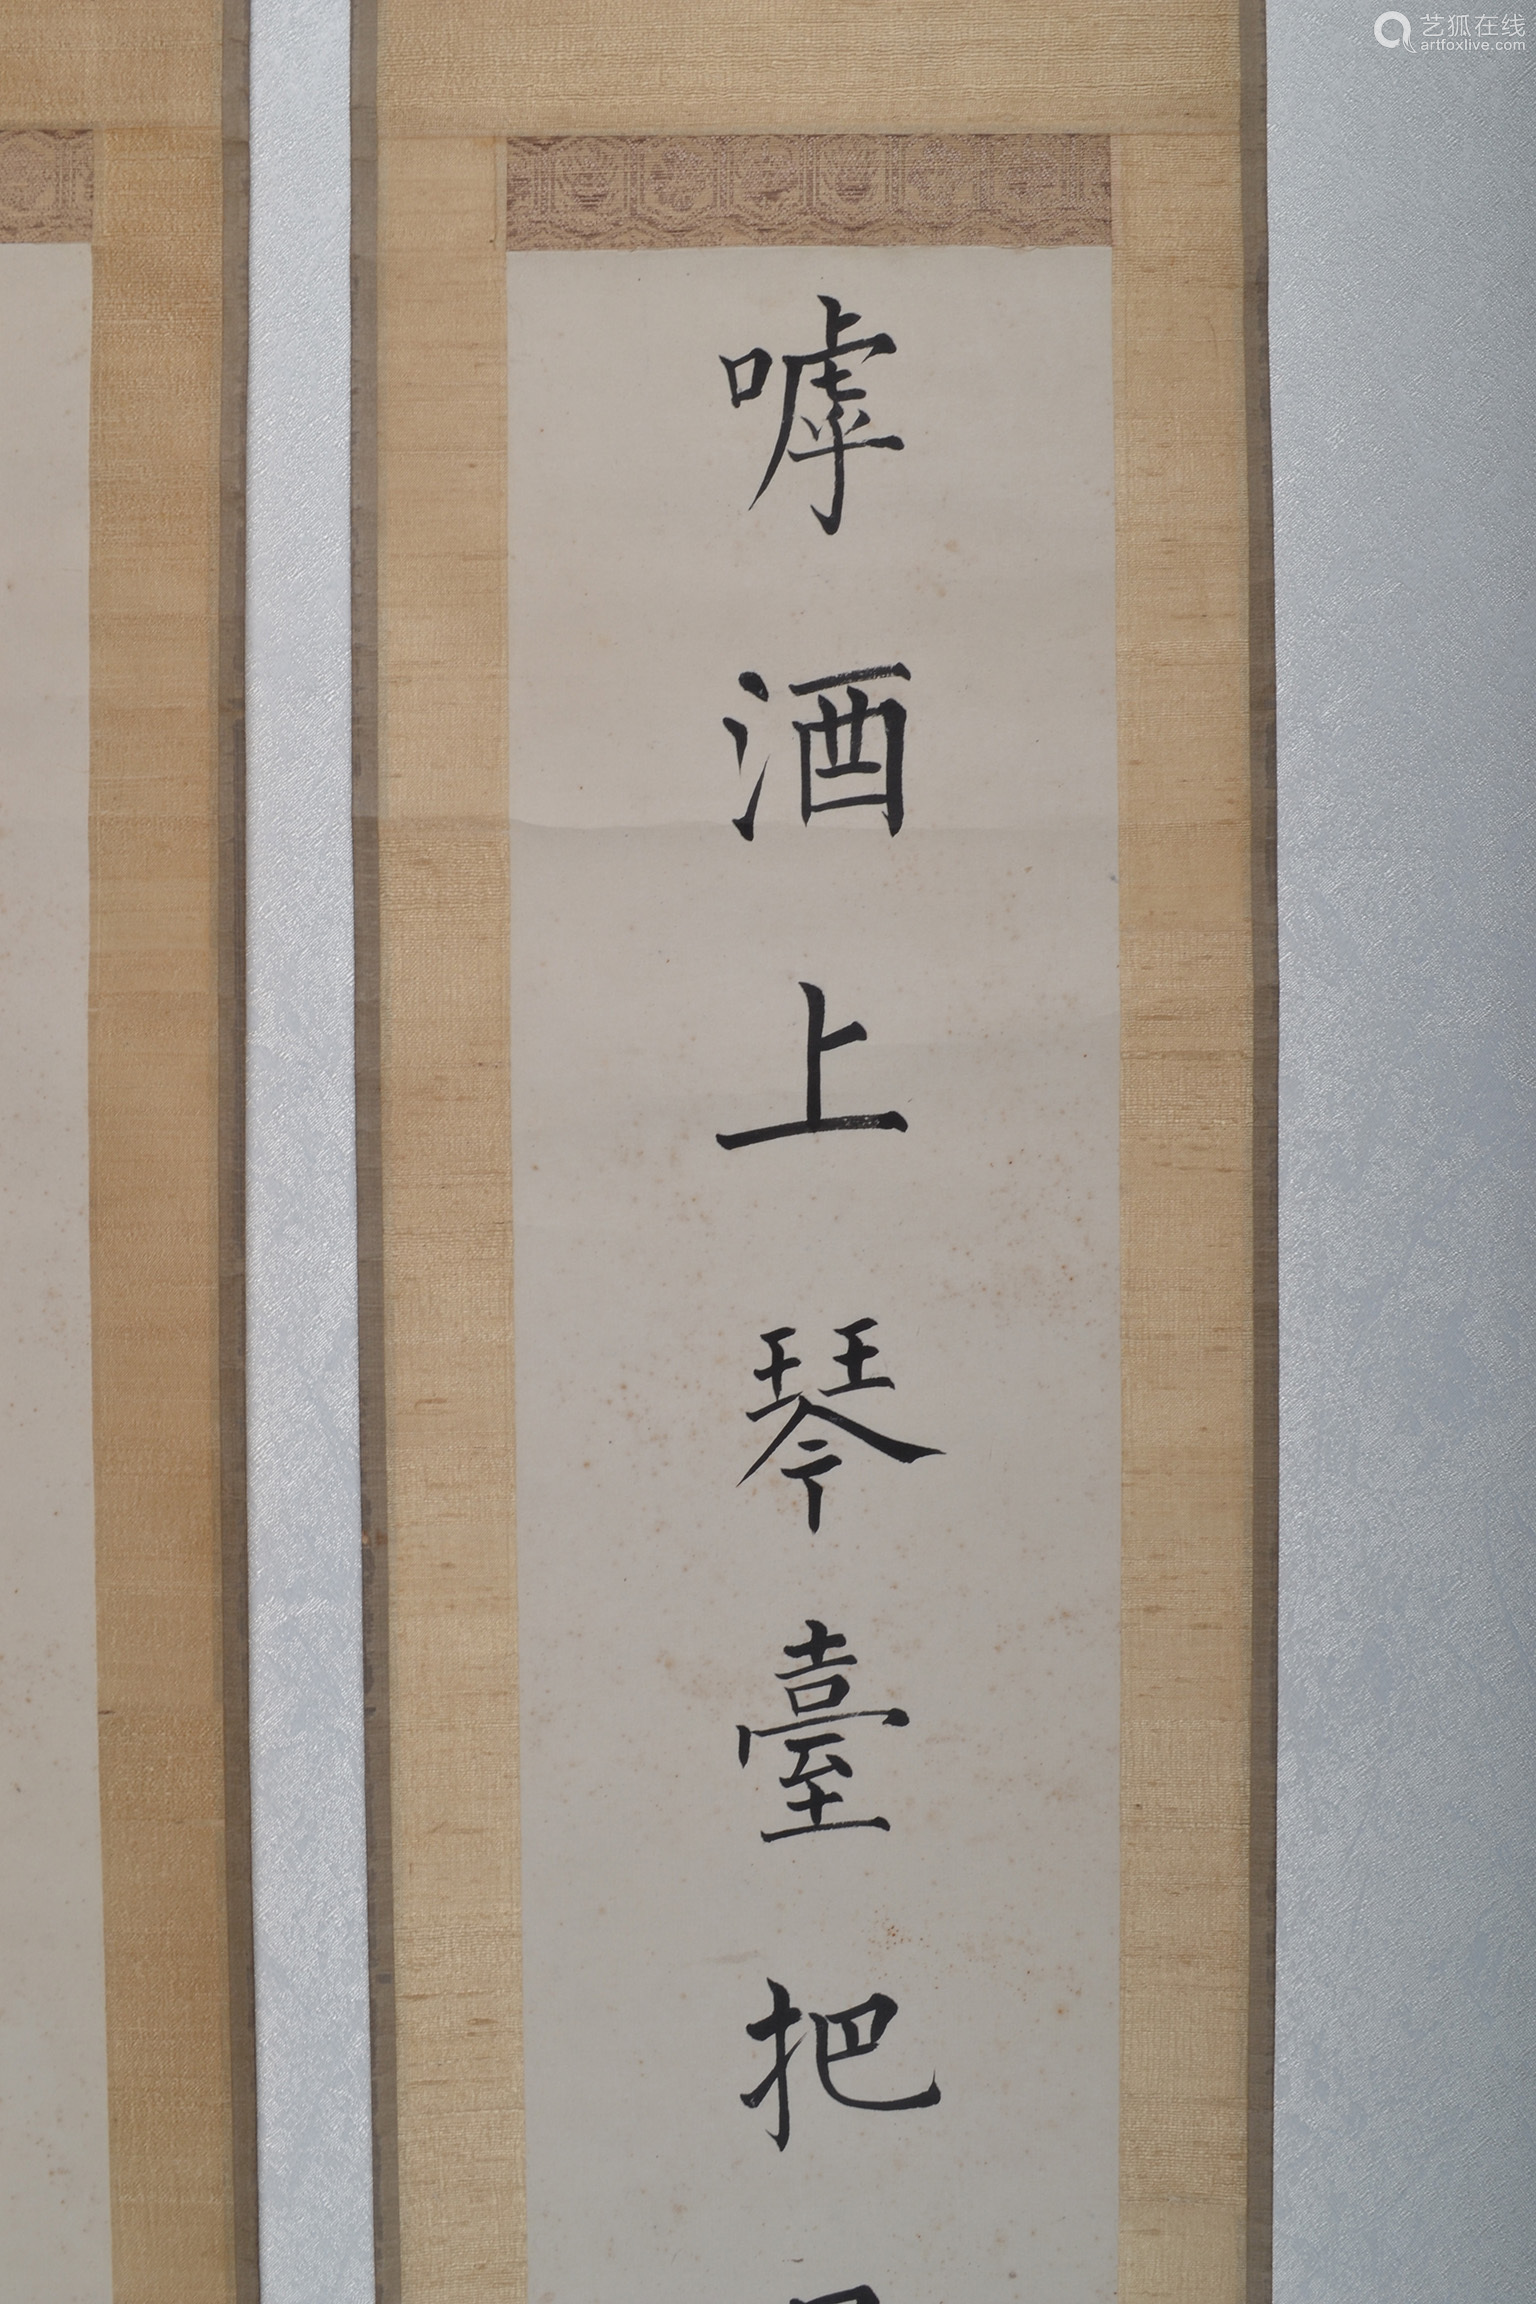 艺狐在线
artfoxlive.com
嘑酒上琴臺把